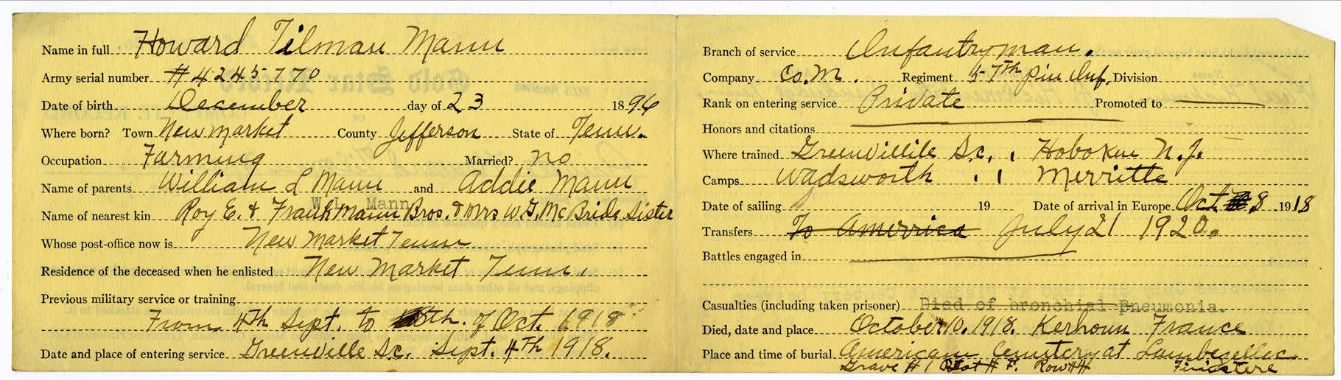 Name in full Howard Tilman Mann
Army serial number #4245770
Date of birth December day of 23 1896
Where born? Town New Market County Jefferson State of Tenn.
Occupation Farming Married? no
Name of parents William L Mann and Addie Mann
W. L. Mann
Name of nearest kin Roy E. & Frank Mann Bros. & Mrs W. G. McBride, Sister
Whose post-office now is New Market Tenn
Residence of the deceased when he enlisted New Market Tenn.
Previous military service or training
From 4th Sept. to 10th. of Oct. 1918
Date and place of entering service Greenville Sc. Sept. 4th 1918.
Branch of service Infantryman.
Company Co. M. Regiment 57th Pin Inf. Division
Rank on entering service Private Promoted to
Honors and citations
Where trained Greenvillile Sc. , Hoboken N.J.
Camps Wadsworth , Merritte
Date of sailing 19 Date of arrival in Europe Oct 8 1918
Transfers To Amerrica July 21 1920.
Battles engaged in
Casualties (including taken prisoner) Died of bronchial Pneumonia.
Died, date and place October 10, 1918. Kerhoun France
Place and time of burial American Cemetery at Lambezellec
Grave #1 Plot # F. Row #4 Finistere